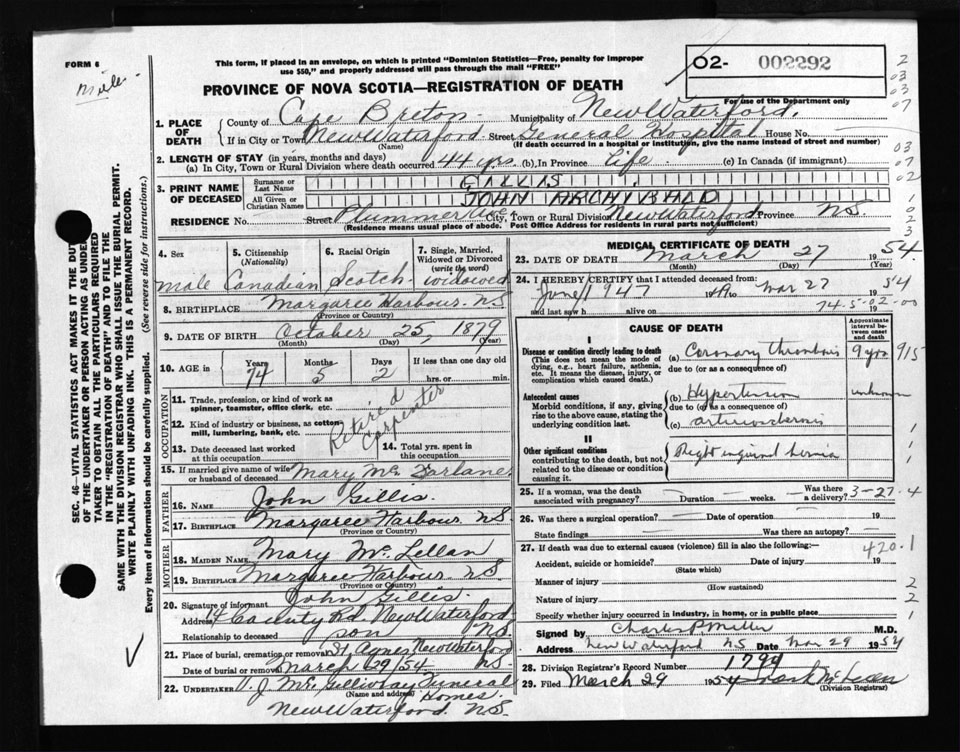 FORM 6
This form, if placed in an envelope, on which is printed "Dominion Statistics—Free, penalty for improper
use $50," and properly addressed will pass through the mail "FREE"
02- 002292
For use of the Department only
PROVINCE OF NOVA SCOTIA—REGISTRATION OF DEATH
1. PLACE OF DEATH
County of Cape Breton Municipality of New Waterford.
If in City or Town New Waterford Street General Hospital House No.
(Name) (If death occurred in a hospital or institution, give the name instead of street and number)
2. LENGTH OF STAY (in years, months and days)
(a) In City, Town or Rural Division where death occurred 44 yrs. (b) In Province Life (c) In Canada (if immigrant)
3. PRINT NAME OF DECEASED
Surname or Last Name GILLIS
All Given or Christian Names JOHN ARCHIBALD
RESIDENCE No. Street Plummer Ave City, Town or Rural Division New Waterford Province N.S.
(Residence means usual place of abode. Post Office Address for residents in rural parts not sufficient)
4. Sex male
5. Citizenship (Nationality) Canadian
6. Racial Origin Scotch
7. Single, Married, Widowed or Divorced (write the word) widowed
8. BIRTHPLACE Margaree Harbour. N.S
(Province or Country)
9. DATE OF BIRTH October 25, 1879
(Month) (Day) (Year)
10. AGE in Years 74 Months 5 Days 2 If less than one day old hrs. or min.
OCCUPATION
11. Trade, profession, or kind of work as spinner, teamster, office clerk, etc.
12. Kind of industry or business, as cotton mill, lumbering, bank, etc.
Retired Carpenter
13. Date deceased last worked at this occupation
14. Total yrs. spent in this occupation
15. If married give name of wife or husband of deceased Mary McFarlane
FATHER
16. NAME John Gillis.
17. BIRTHPLACE Margaree Harbour. N.S
(Province or Country)
MOTHER
18. MAIDEN NAME Mary McLellan
19. BIRTHPLACE Margaree Harbour. N.S
(Province or Country)
20. Signature of informant John Gillis.
Address 14 County Rd. New Waterford N.S.
Relationship to deceased son
21. Place of burial, cremation or removal St Agnes New Waterford N.S.
Date of burial or removal March 29/54
22. UNDERTAKER V. J. McGillivray Funeral Homes.
(Name and address)
New Waterford. N.S.
MEDICAL CERTIFICATE OF DEATH
23. DATE OF DEATH March 27 1954
(Month) (Day) (Year)
24. I HEREBY CERTIFY that I attended deceased from:
June 1947 19 to Mar 27 1954
and last saw h alive on 19
74.5-02-00
CAUSE OF DEATH
Approximate interval between onset and death
I
Disease or condition directly leading to death (a) Coronary thrombosis 9 yrs
(This does not mean the mode of dying, e.g., heart failure, asthenia, etc. It means the disease, injury, or complication which caused death.)
due to (or as a consequence of)
Antecedent causes (b) Hypertension unknown
Morbid conditions, if any, giving rise to the above cause, stating the underlying condition last.
due to (or as a consequence of)
(c) arteriosclerosis
II
Other significant conditions Right inguinal hernia
contributing to the death, but not related to the disease or condition causing it.
25. If a woman, was the death associated with pregnancy? Duration weeks. Was there a delivery? 3-27-4
26. Was there a surgical operation? Date of operation
State findings Was there an autopsy?
27. If death was due to external causes (violence) fill in also the following:—
420.1
Accident, suicide or homicide? Date of injury 19
(State which)
Manner of injury
(How sustained)
Nature of injury
Specify whether injury occurred in industry, in home, or in public place
Signed by Charles P Miller M.D.
Address New Waterford NS Date Mar 29 1954
28. Division Registrar's Record Number 1799
29. Filed March 29 1954
(Division Registrar)
SEC. 46—VITAL STATISTICS ACT MAKES IT THE DUTY
OF THE UNDERTAKER OR PERSON ACTING AS UNDERTAKER
TO OBTAIN ALL THE PARTICULARS REQUIRED
IN THE "REGISTRATION OF DEATH" AND TO FILE THE
SAME WITH THE DIVISION REGISTRAR WHO SHALL ISSUE THE BURIAL PERMIT.
WRITE PLAINLY WITH UNFADING INK. THIS IS A PERMANENT RECORD.
Every item of information should be carefully supplied. (See reverse side for instructions.)